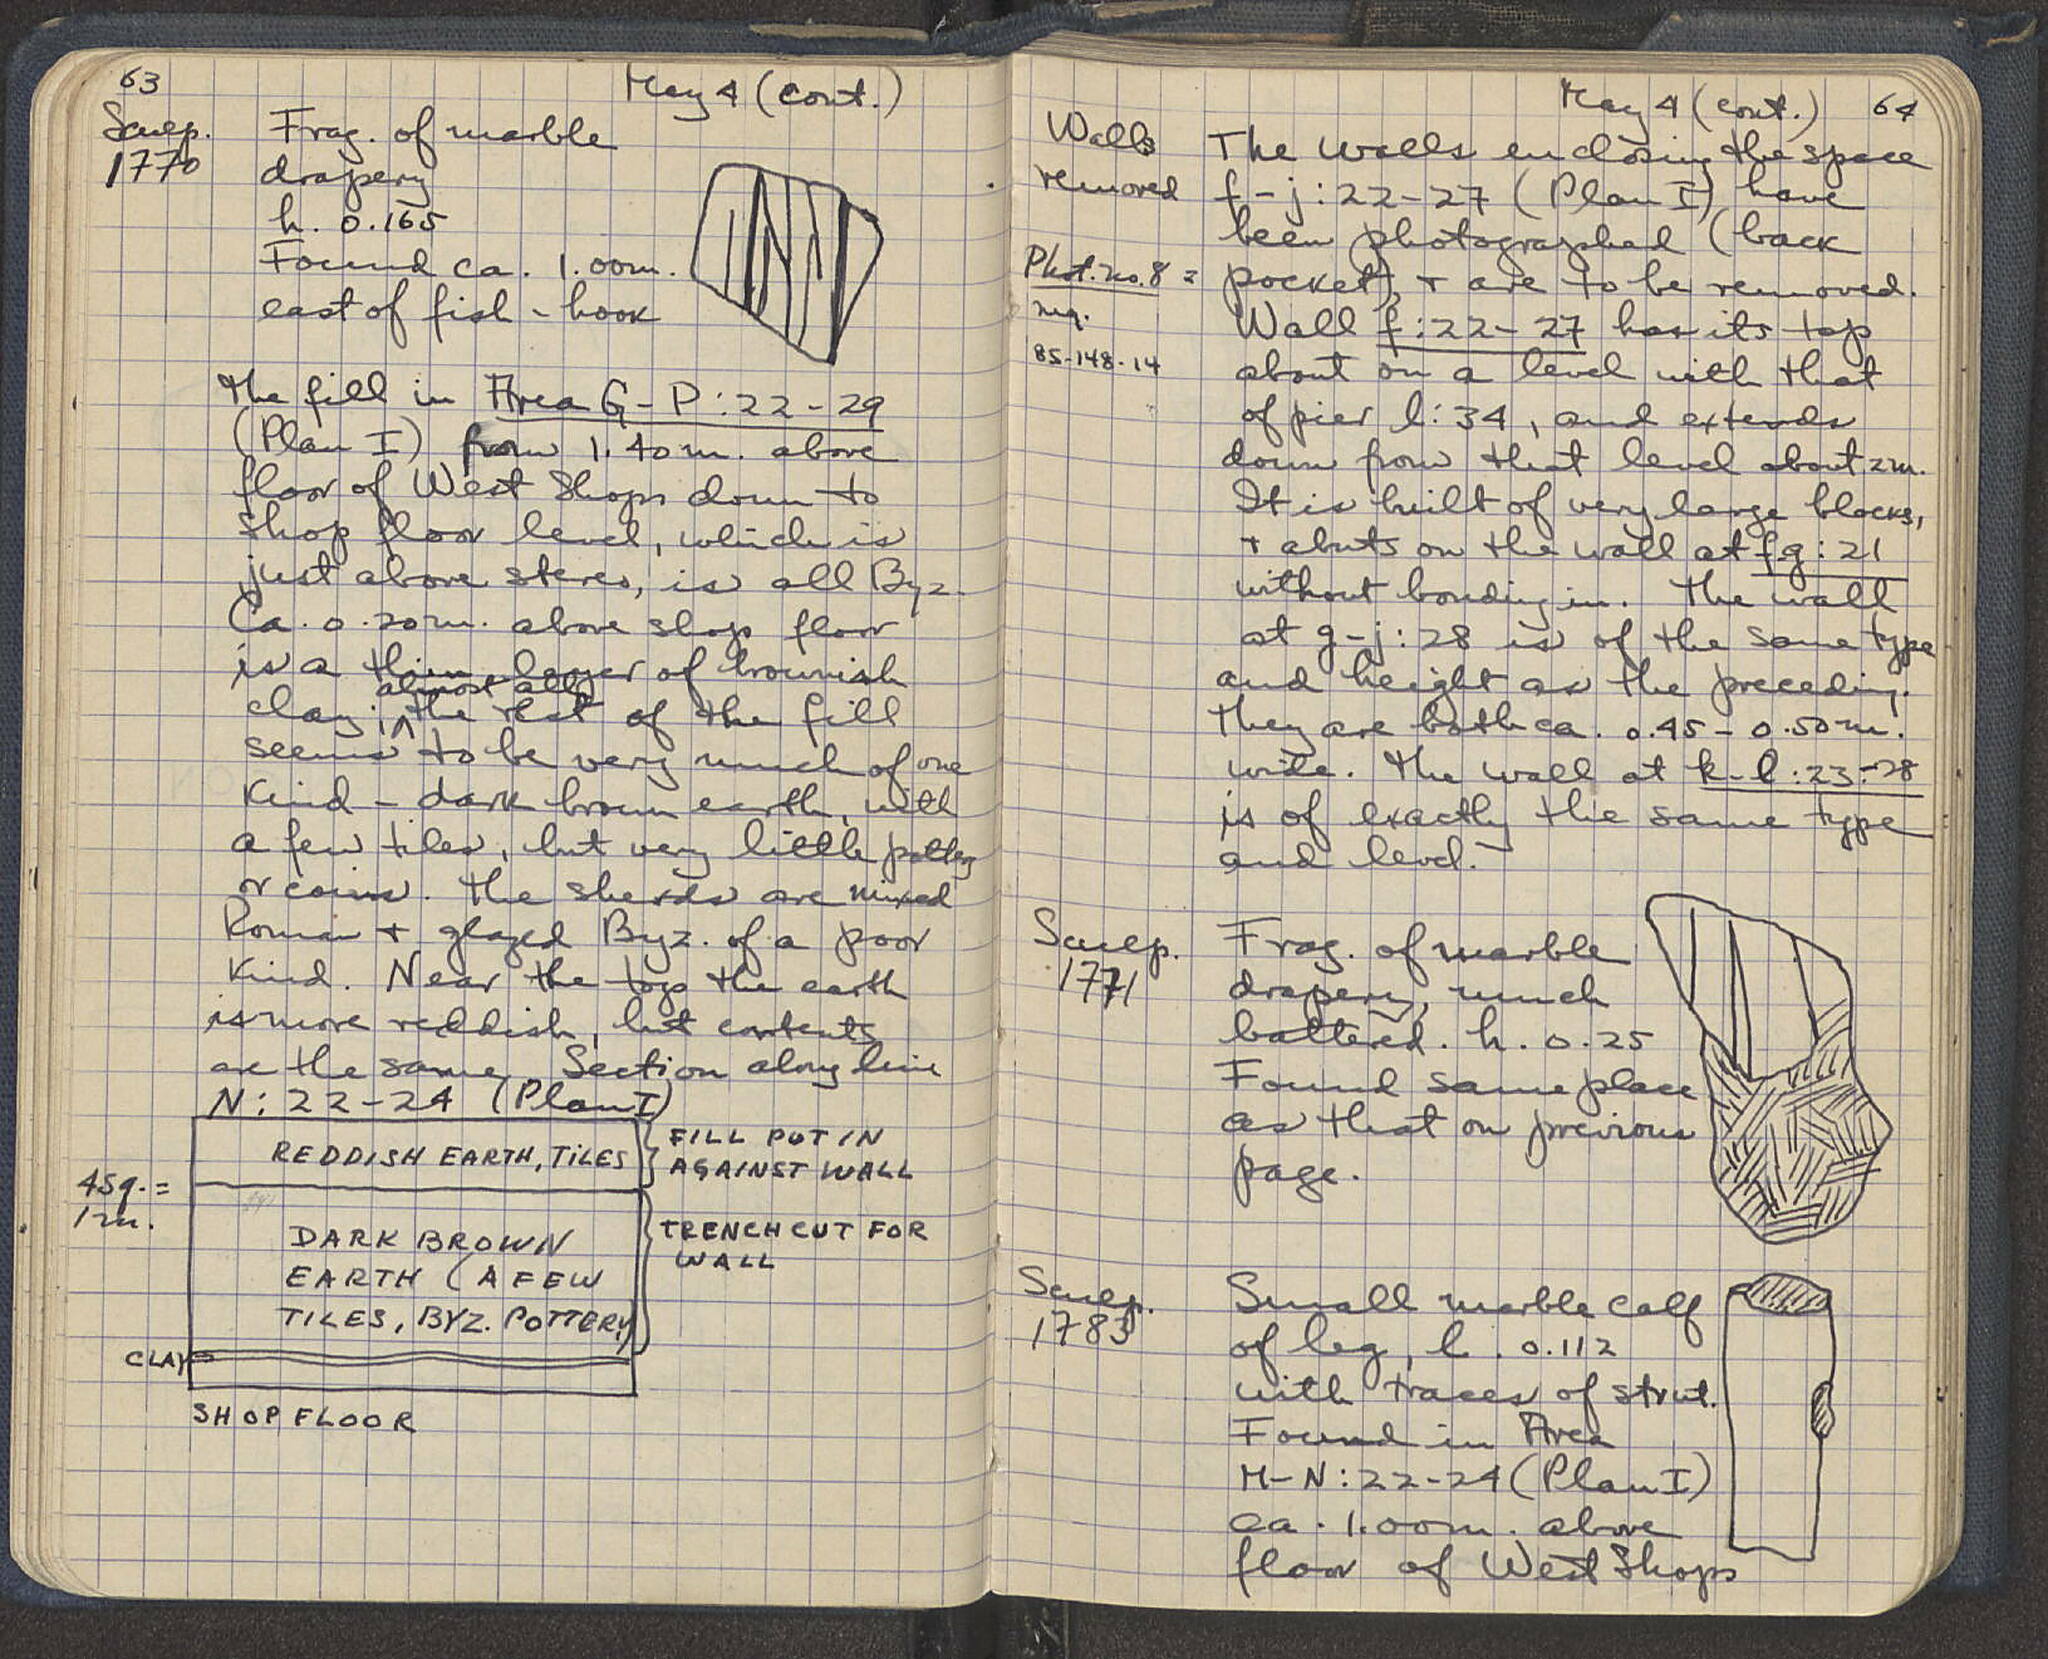 63
May 4 (cont.)
Sculp.
1770
Frag. of marble
drapery
h. 0.165
Found ca. 1.00m.
east of fish-hook
The fill in Area G-P:22-29
(Plan I) from 1.40m. above
floor of West Shops down to
shop floor level, which is
just above stereo, is all Byz.
Ca. 0.20m. above shop floor
is a thin layer of brownish
almost all
clay; ^ the rest of the fill
seems to be very much of one
kind - dark brown earth, with
a few tiles, but very little pottery
or coins. The sherds are mixed
Roman + glazed Byz. of a poor
kind. Near the top the earth
is more reddish, but contents
are the same. Section along line
N:22-24 (Plan I)
REDDISH EARTH, TILES
FILL PUT IN
AGAINST WALL
4sq. =
1m.
DARK BROWN
EARTH (A FEW
TILES, BYZ. POTTERY)
TRENCH CUT FOR
WALL
CLAY
SHOP FLOOR
May 4 (cont.)
64
Walls
removed
The walls enclosing the space
f-j:22-27 (Plan I) have
been photographed (back
Phot. no. 8 =
neg.
85-148-14
pocket), + are to be removed.
Wall f:22-27 has its top
about on a level with that
of pier l:34, and extends
down from that level about 2m.
It is built of very large blocks,
+ abuts on the wall at fg:21
without bonding in. The wall
at g-j:28 is of the same type
and height as the preceding.
They are both ca. 0.45-0.50m.
wide. The wall at k-l:23-28
is of exactly the same type
and level.
Sculp.
1771
Frag. of marble
drapery, much
battered. h. 0.25
Found same place
as that on previous
page.
Sculp.
1783
Small marble calf
of leg, l. 0.112
with traces of strut.
Found in Area
M-N:22-24 (Plan I)
ca. 1.00m. above
floor of West Shops